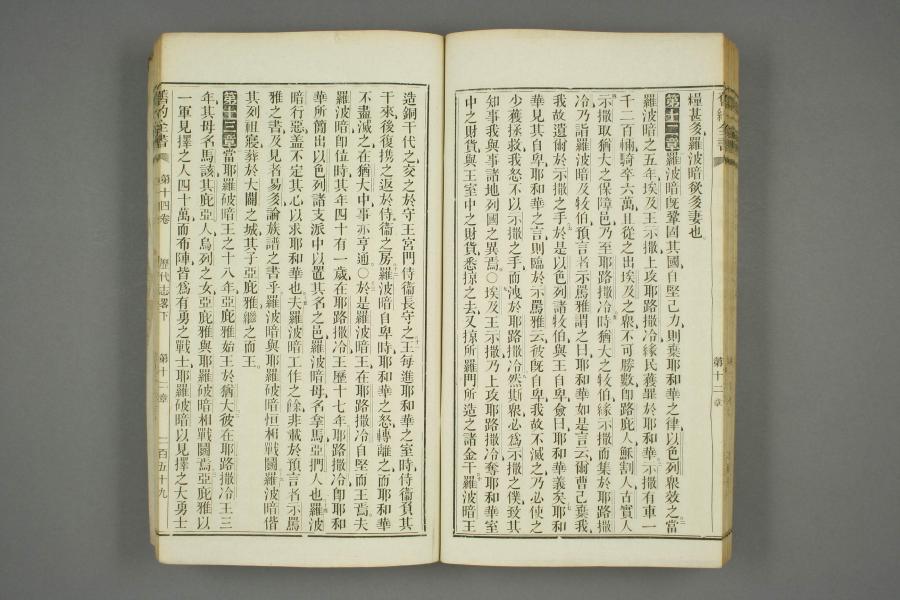 糧甚多、羅波暗欲多妻也。
第十二章 羅波暗旣鞏固其國、自堅己力、則棄耶和華之律、以色列衆效之、當
羅波暗之五年、埃及王示撒上攻耶路撒冷、緣民獲罪於耶和華、示撒有車一
千二百輛、騎卒六萬、且從之出埃及之衆、不可勝數、卽路庇人、穌割人、古實人、
示撒取猶大之保障邑、乃至耶路撒冷、時猶大之牧伯、緣示撒而集於耶路撒
冷、乃詣羅波暗及牧伯、預言者示罵雅謂之曰、耶和華如是言云、爾曹已棄我、
我故遺爾於示撒之手、於是以色列諸牧伯與王自卑、僉曰、耶和華義矣、耶和
華見其自卑、耶和華之言、則臨於示罵雅云、彼旣自卑、我故不滅之、乃必使之
少獲拯救、我怒不以示撒之手、而洩於耶路撒冷、然斯衆必爲示撒之僕、致其
知事我與事諸地列國之異焉。○埃及王示撒乃上攻耶路撒冷、奪耶和華室
中之財貨、與王室中之財貨、悉掠之去、又掠所羅門所造之諸金干、羅波暗王
第十二章
造銅干代之、交之於守王宮門侍衞長守之、王每進耶和華之室時、侍衞負其
干來、後復攜之返於侍衞之房、羅波暗自卑時、耶和華之怒轉離之、而耶和華
不盡滅之、在猶大中事亦亨通。○於是羅波暗王在耶路撒冷自堅而王焉、夫
羅波暗卽位時、其年四十有一歲、在耶路撒冷王歷十七年、耶路撒冷卽耶和
華所簡出以色列諸支派中、以置其名之邑、羅波暗母名拿馬、亞捫人也、羅波
暗行惡、蓋不定其心以求耶和華也、夫羅波暗工作之餘、非載於預言者示罵
雅之書、及見者易多論族譜之書乎、羅波暗與耶羅破暗恒相戰鬭、羅波暗偕
其列祖寢、葬於大闢之城、其子亞庇雅繼之而王。
第十三章 當耶羅破暗王之十八年、亞庇雅始王於猶大、彼在耶路撒冷王三
年、其母名馬該、其庇亞人烏列之女、亞庇雅與耶羅破暗相戰鬭焉、亞庇雅以
一軍見擇之人四十萬而布陣、皆爲有勇之戰士、耶羅破暗以見擇之大勇士
舊約全書 第十四卷 歷代志畧下 第十二章 二百五十九